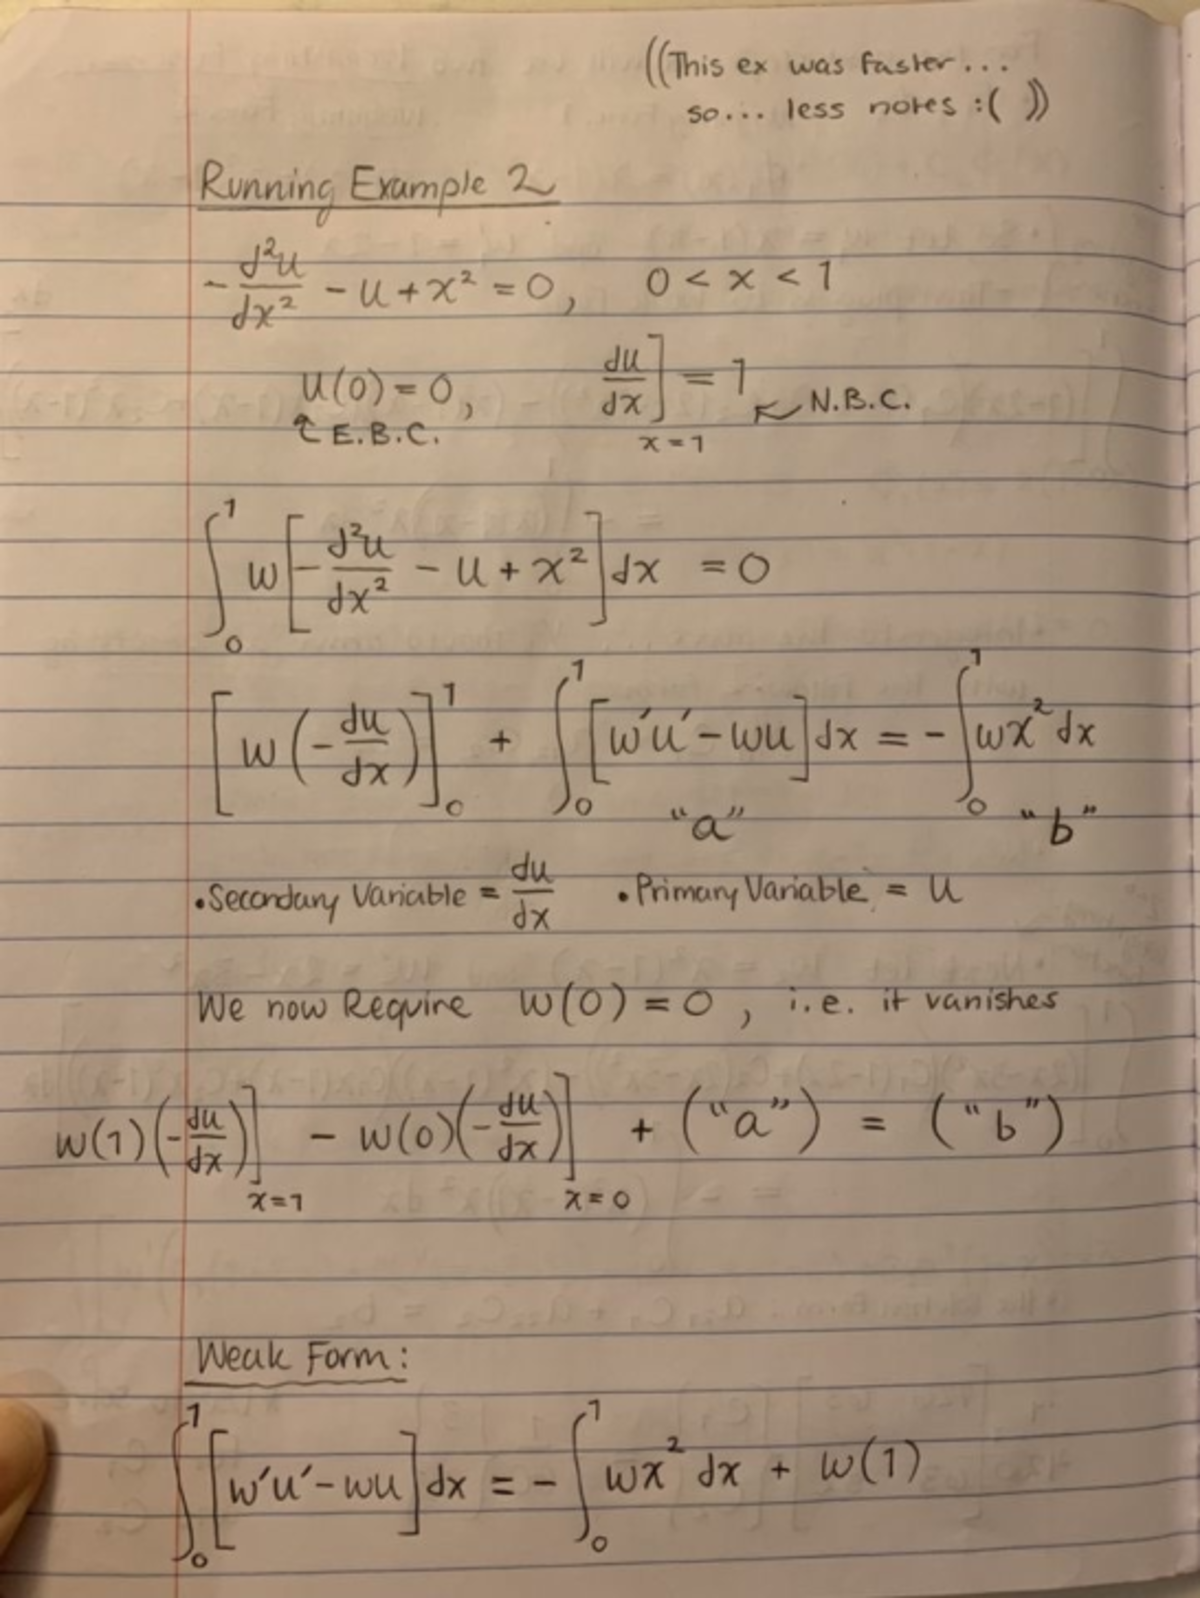 ((This ex was faster...
so... less notes :( ))
Running Example 2
-d²u/dx² - u + x² = 0, 0 < x < 1
u(0) = 0, du/dx]x=1 = 1
↑ E.B.C. ↙ N.B.C.
∫₀¹ w[-d²u/dx² - u + x²]dx = 0
[w(-du/dx)]₀¹ + ∫₀¹ [w'u' - wu]dx = - ∫₀¹ wx² dx
"a" "b"
•Secondary Variable = du/dx •Primary Variable = u
We now Require w(0) = 0, i.e. it vanishes
w(1)(-du/dx)]x=1 - w(0)(-du/dx)]x=0 + ("a") = ("b")
Weak Form:
∫₀¹ [w'u' - wu]dx = - ∫₀¹ wx² dx + w(1)